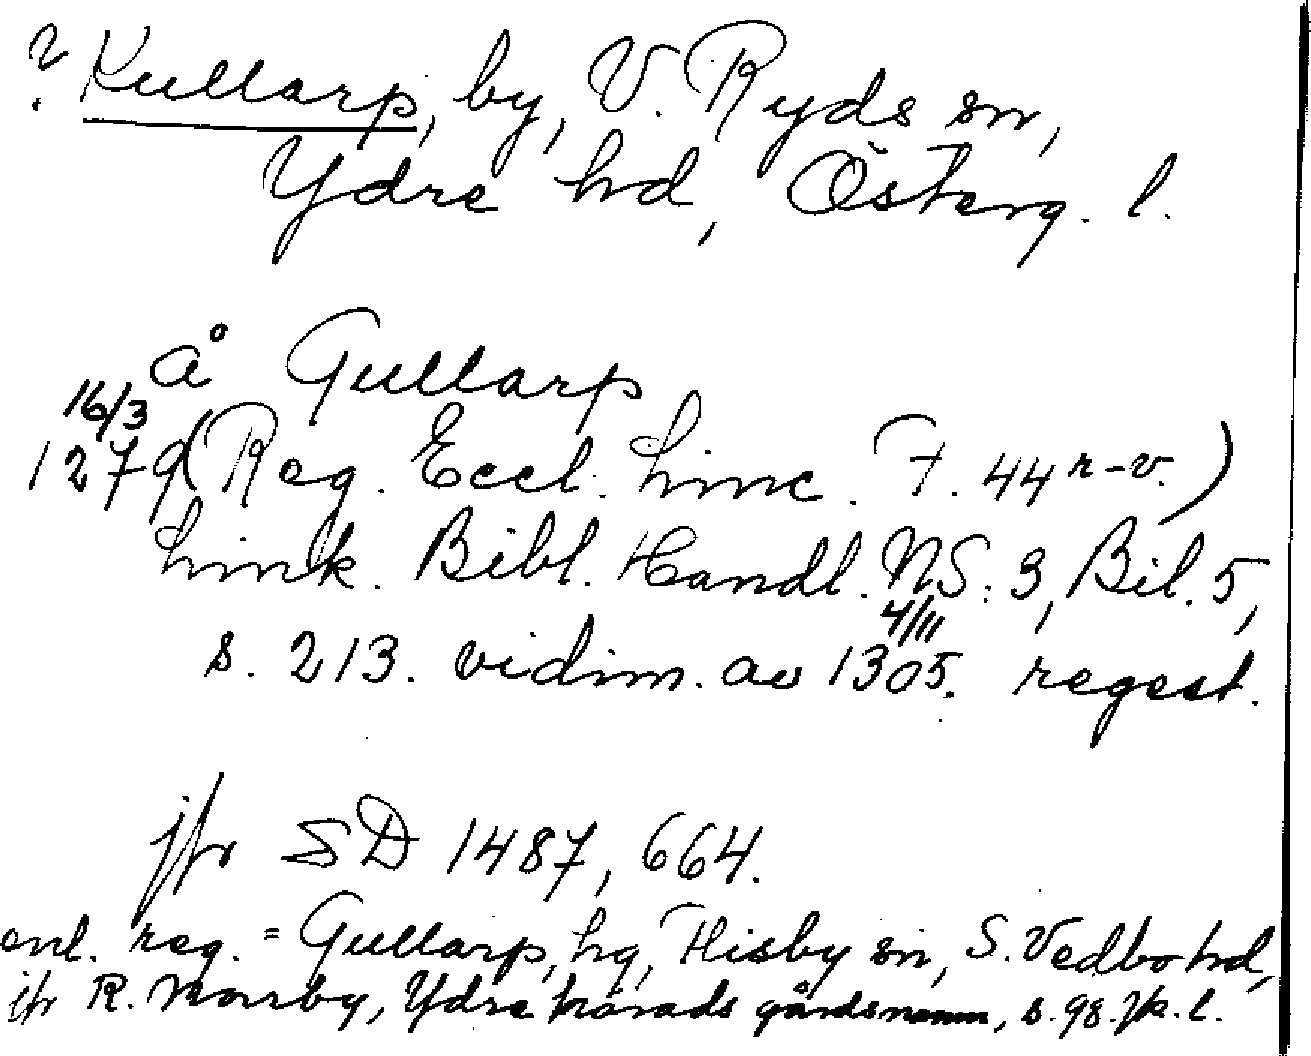 ? Kullarp, by, V. Ryds sn,
Ydre hd, Österg. l.
å Gullarp
16/3
1279 (Reg. Eccl. Linc. F. 44 r-v.)
Link. Bibl. Handl. NS: 3, Bil. 5,
4/11
s. 213. vidim. av 1305. regest.
jfr SD 1487, 664.
enl. reg. = Gullarp, hg, Flisby sn, S. Vedbo hd,
jfr R. Norrby, Ydre härads gårdsnamn, s. 98. Jk. l.